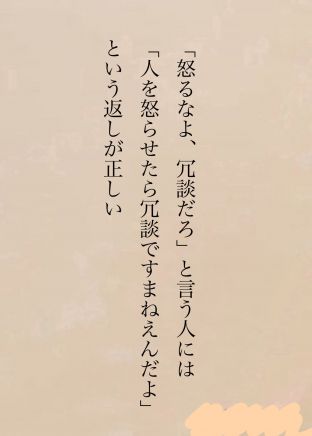 「怒るなよ、冗談だろ」と言う人には
「人を怒らせたら冗談ですまねえんだよ」
という返しが正しい